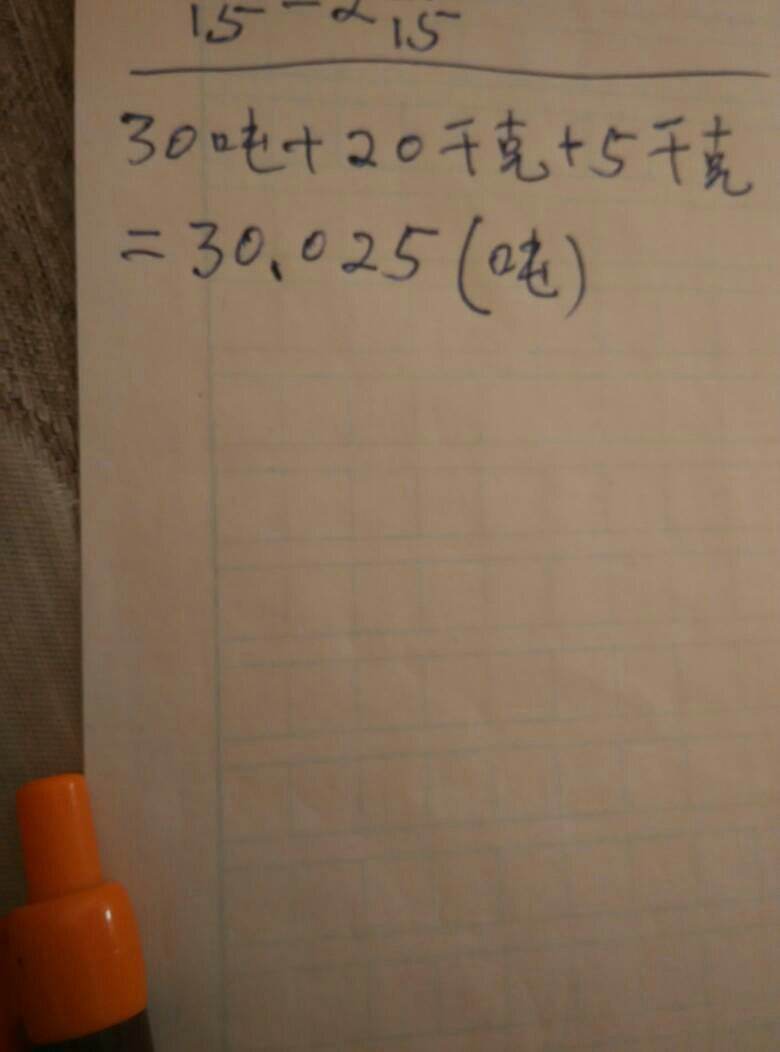 15 - 2 15
30吨+20千克+5千克
=30.025(吨)